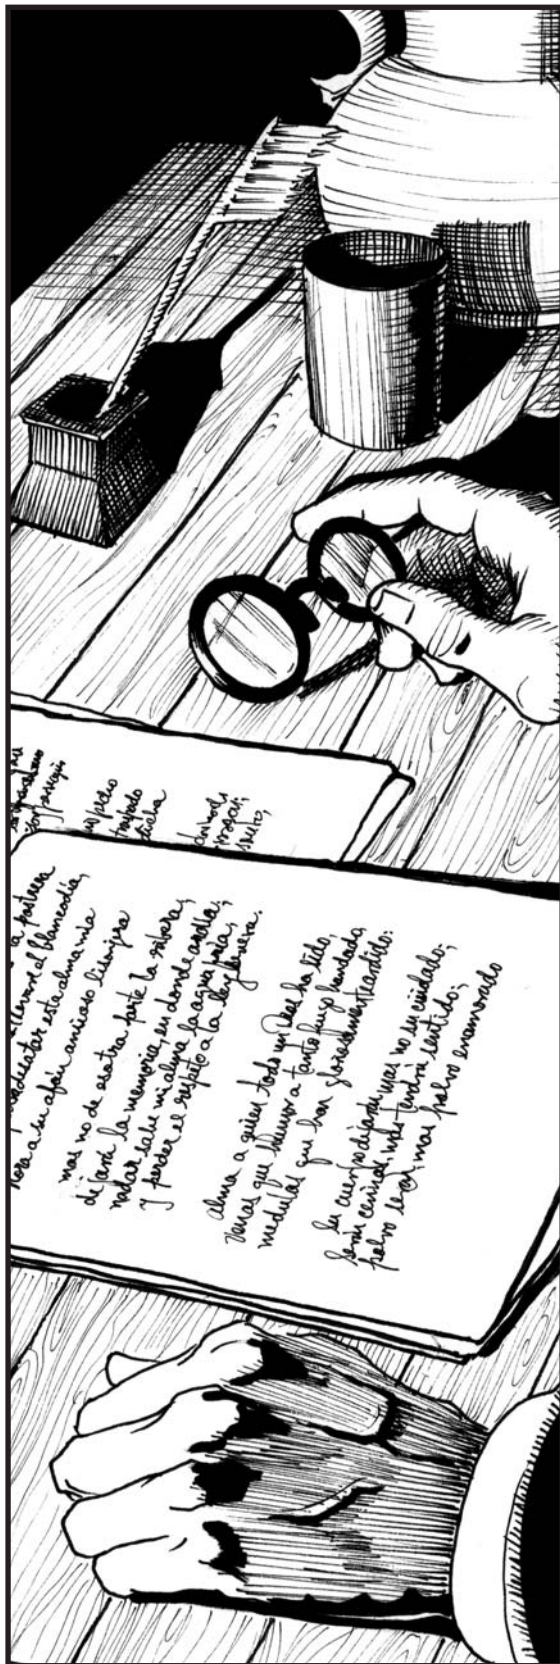 la postrera
llevare el blanco día,
desatar esta alma mía
hora a su afán ansioso lisonjera
mas no de esotra parte la ribera,
dejará la memoria, en donde ardía:
nadar sabe mi alma la agua fría,
y perder el respeto a la ley severa.
alma a quien todo un Dios ha sido,
venas que humor a tanto fuego han dado,
medulas que han gloriosamente ardido:
su cuerpo dejarán, mas no su cuidado;
serán ceniza, mas tendrá sentido;
polvo serán, mas polvo enamorado